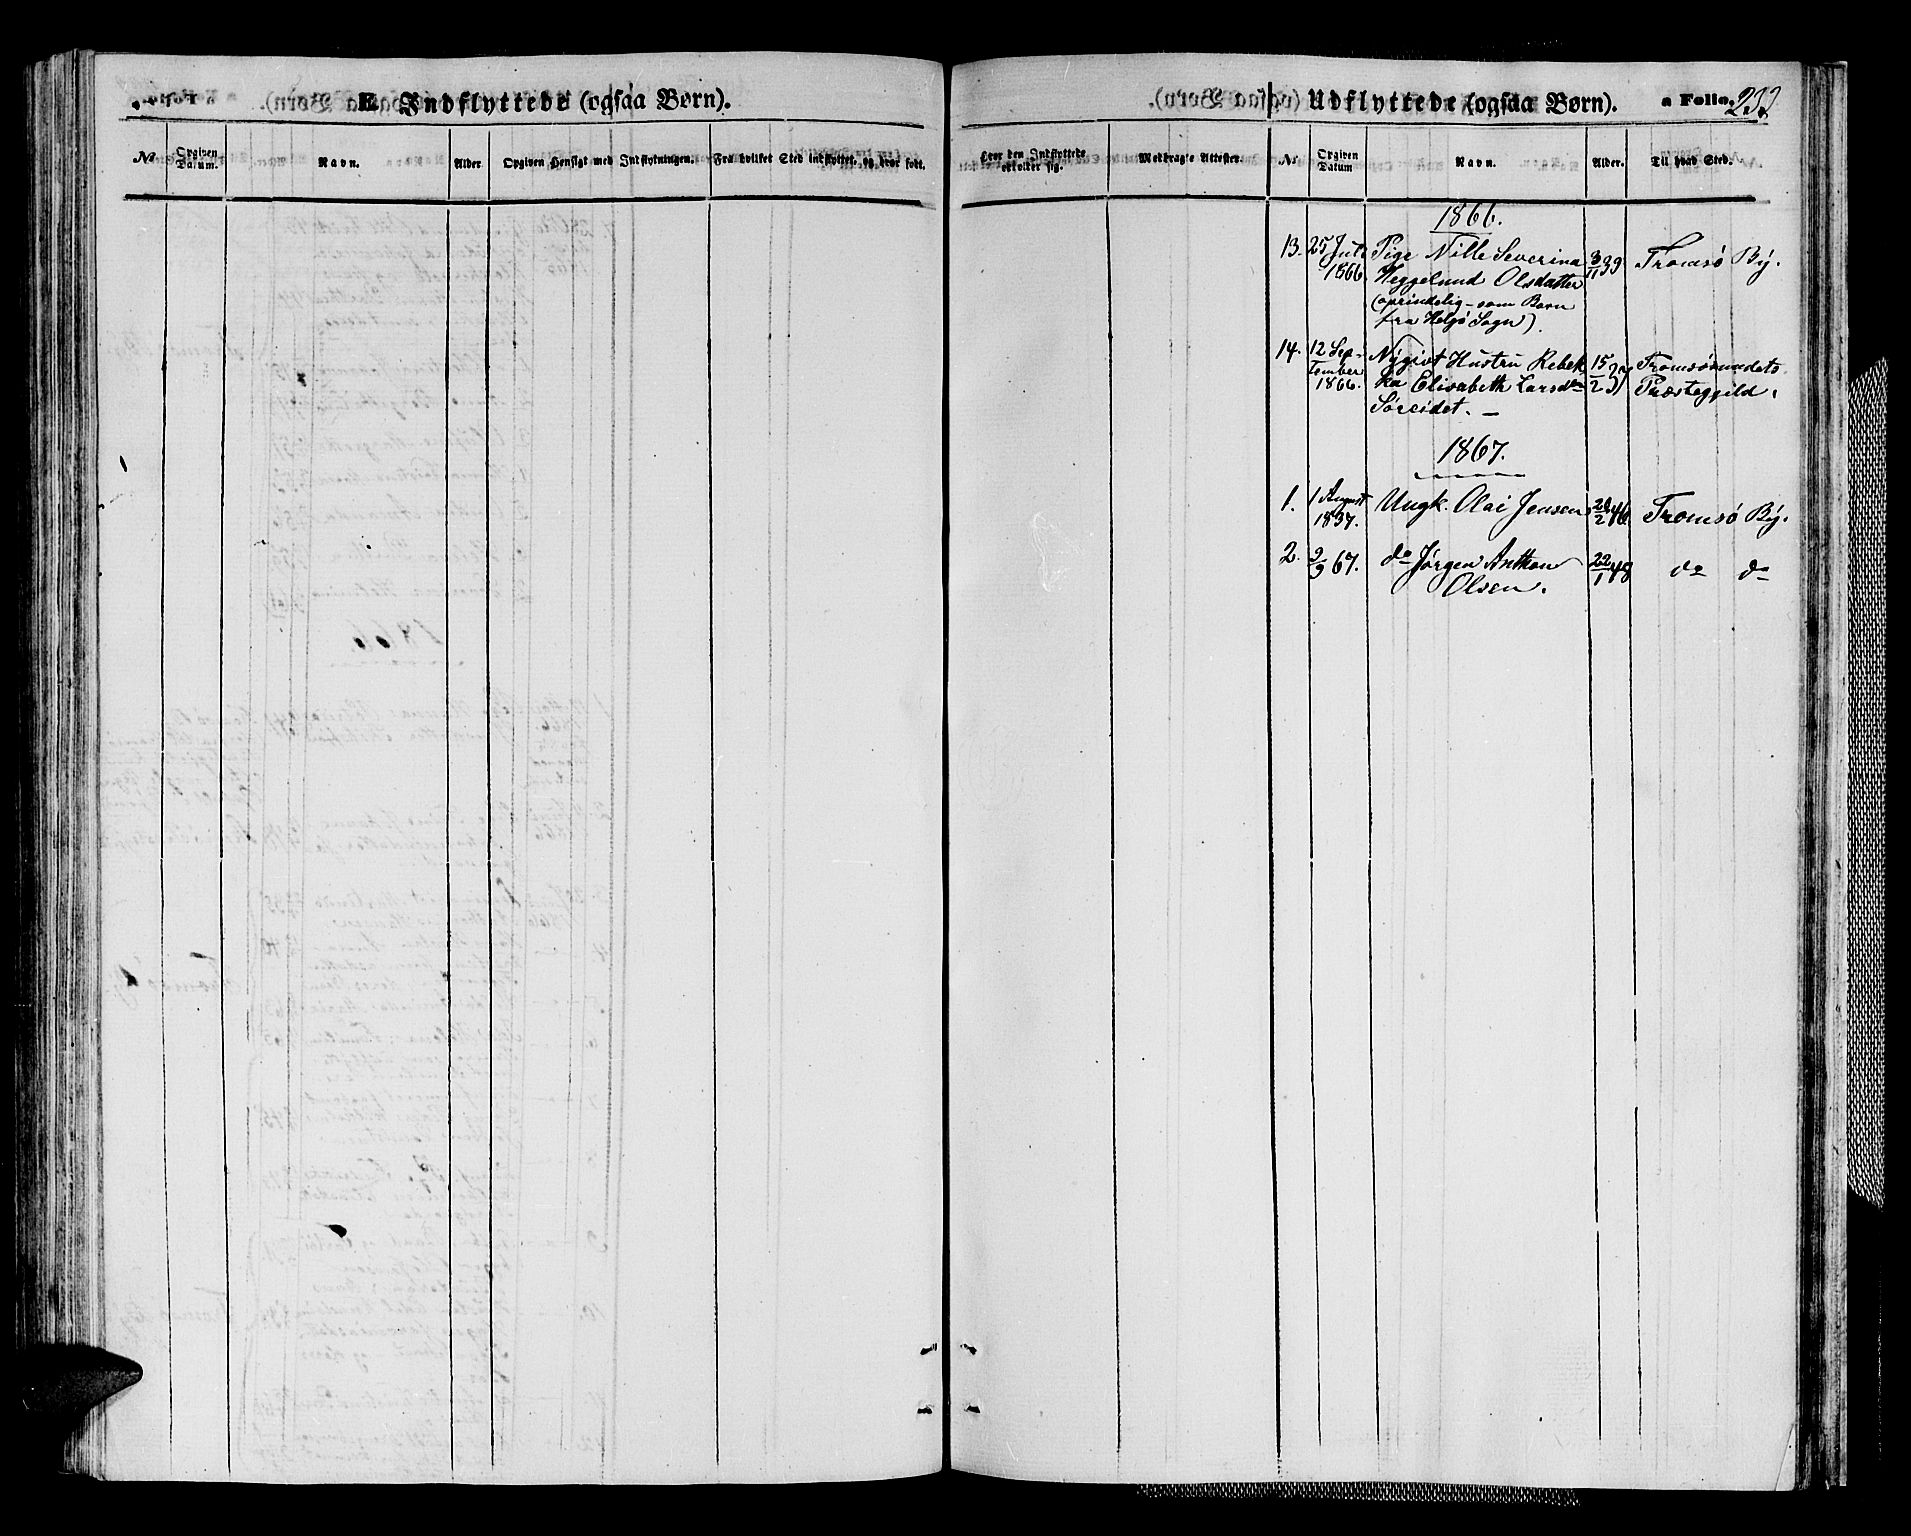 E. Indflyttede (ogsaa Børn).
Udflyttede (ogsaa Børn).
a Folio. 232
No Opgiven Datum. Navn. Alder. Opgiven Hensigt med Indflytningen. Fra hvilket Sted indflyttet, og hvor født.
Hvor den Indflyttede opholder sig. Medbragte Attester. No Opgiven Datum Navn. Alder. Til hvad Sted.
1866.
13. 25 Juli Pige Nille Severina 3/11 39 Tromsø By.
1866. Heggelund Olsdatter
(oprindelig som Barn
fra Helgø Sogn).
14. 12 Sep- Nygivt Hustru Rebek- 15/2 37 Tromsøsundets
tember ka Elisabeth Larsdtr Præstegjeld.
1866. Søreidet. —
1867.
1. 1 August Ungk. Olai Jensen 20/2 46 Tromsø By.
1867.
2. 2/9 67. do Jørgen Anthon 22/1 48 do do
Olsen.